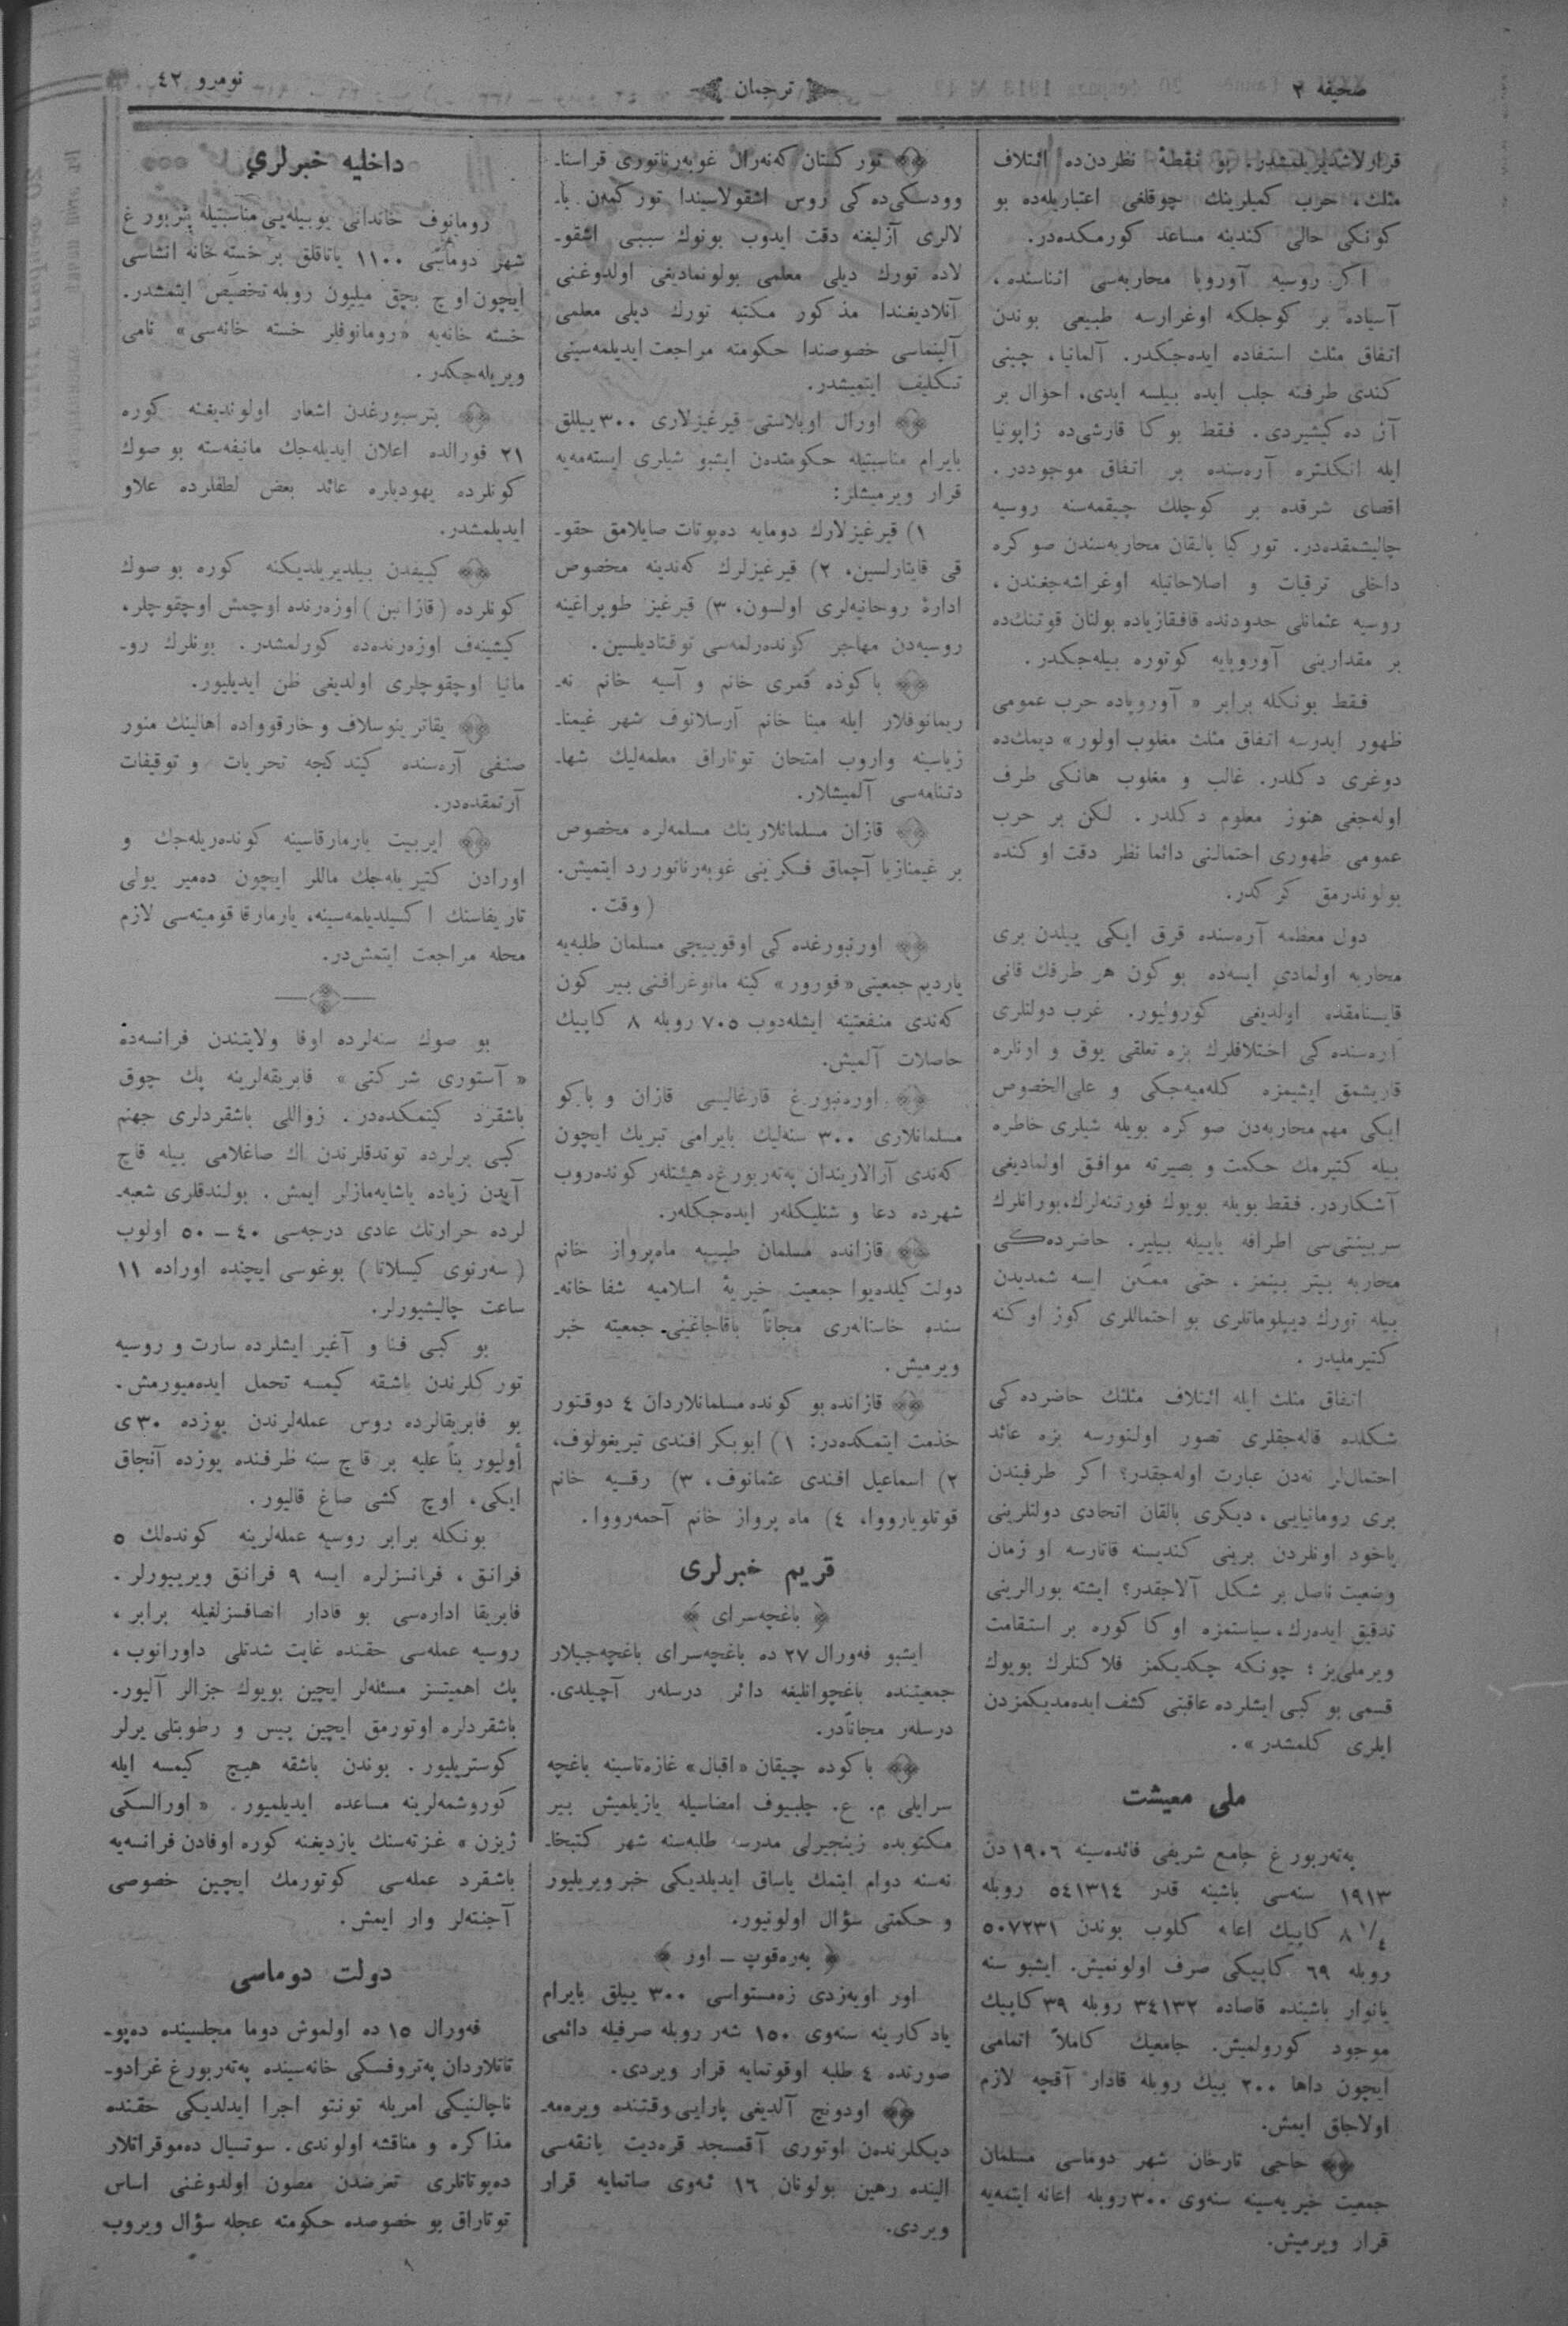 صحیفه ٢
ترجمان
نومرو ٤٢
قرارلاشدیریلمشدر. بو نقطهٔ نظردن‌ده ائتلاف
مثلث، حرب کمیلرینك چوقلغی اعتباریله‌ده بو
کونکی حالی کندینه مساعد کورمکده‌در.
اکر روسیه آوروپا محاربه‌سی اثناسنده،
آسیاده بر کوجلکه اوغرارسه طبیعی بوندن
اتفاق مثلث استفاده ایده‌جکدر. آلمانیا، چینی
کندی طرفنه جلب ایده بیلسه ایدی، احوال بر
آز ده کیشیردی. فقط بوکا قارشی‌ده ژاپونیا
ایله انکلتره آره‌سنده بر اتفاق موجوددر.
اقصای شرقده بر کوجلك چیقمه‌سنه روسیه
چالیشمقده‌در. تورکیا بالقان محاربه‌سندن صوکره
داخلی ترقیات و اصلاحاتیله اوغراشه‌جغندن،
روسیه عثمانلی حدودنده قافقازیاده بولنان قوتنك‌ده
بر مقدارینی آوروپایه کوتوره بیله‌جکدر.
فقط بونکله برابر « آوروپاده حرب عمومی
ظهور ایدرسه اتفاق مثلث مغلوب اولور» دیمك‌ده
دوغری دکلدر. غالب و مغلوب هانکی طرف
اوله‌جغی هنوز معلوم دکلدر. لکن بر حرب
عمومی ظهوری احتمالنی دائما نظر دقت اوکنده
بولوندرمق کرکدر.
دول معظمه آره‌سنده قرق ایکی ییلدن بری
محاربه اولمادی ایسه‌ده بوکون هر طرفك قانی
قایسنامقده اولدیغی کورولیور. غرب دولتلری
آره‌سنده کی اختلافلرك بزه تعلقی یوق و اونلره
قاریشمق ایشیمزه کله‌میه‌جکی و علی‌الخصوص
ایکی مهم محاربه‌دن صوکره بویله شیلری خاطره
بیله کتیرمك حکمت و بصیرته موافق اولمادیغی
آشکاردر. فقط بویله بویوك فورتنه‌لرك، بورانلرك
سرپینتی‌سی اطرافه یاییله بیلیر. حاضرده‌کی
محاربه بیتر بیتمز، حتی ممکن ایسه شمدیدن
بیله تورك دیپلوماتلری بو احتماللری کوز اوکنه
کتیرملیدر.
اتفاق مثلث ایله ائتلاف مثلثك حاضرده کی
شکلده قاله‌جقلری تصور اولنورسه بزه عائد
احتماللر نه‌دن عبارت اوله‌جقدر؟ اکر طرفیندن
بری رومانیایی، دیکری بالقان اتحادی دولتلرینی
یاخود اونلردن برینی کندیسنه قاتارسه او زمان
وضعیت ناصل بر شکل آلاجقدر؟ ایشته بورالرینی
تدقیق ایده‌رك، سیاستمزه اوکا کوره بر استقامت
ویرملی‌یز؛ چونکه چکدیکمز فلاکتلرك بویوك
قسمی بو کبی ایشلرده عاقبتی کشف ایده‌مدیکمزدن
ایلری کلمشدر».
ملی معیشت
په‌ته‌ربورغ جامع شریفی فائده‌سینه ١٩٠٦ دن
١٩١٣ سنه‌سی باشینه قدر ٥٤١٣١٤ روبله
٨ ١/٤ کاپیك اعانه کلوب بوندن ٥٠٧٢٣١
روبله ٦٩ کاپیکی صرف اولونمیش. ایشبو سنه
یانوار باشینده قاصاده ٣٤١٣٢ روبله ٣٩ کاپیك
موجود کورولمیش. جامعیك کاملاً اتمامی
ایچون داها ٢٠٠ بیك روبله قادار آقچه لازم
اولاجاق ایمش.
حاجی تارخان شهر دوماسی مسلمان
جمعیت خیریه‌سینه سنه‌وی ٣٠٠ روبله اعانه ایتمه‌یه
قرار ویرمیش.
تورکستان که‌نه‌رال غوبه‌رناتوری قراسنا-
وودسکی‌ده کی روس اشقولاسیندا تورکمه‌ن با-
لالری آزلیغنه دقت ایدوب بونوك سببی اشقو-
لاده تورك دیلی معلمی بولونمادیغی اولدوغنی
آنلادیغندا مذکور مکتبه تورك دیلی معلمی
آلینماسی خصوصندا حکومته مراجعت ایدیلمه‌سینی
تکلیف ایتمیشدر.
اورال اوبلاستی قیرغیزلاری ٣٠٠ ییللق
بایرام مناسبتیله حکومتدن ایشبو شیلری ایسته‌مه‌یه
قرار ویرمیشلر:
١) قیرغیزلارك دومایه ده‌پوتات صایلامق حقو-
قی قایتارلسین، ٢) قیرغیزلرك که‌ندینه مخصوص
ادارهٔ روحانیه‌لری اولسون، ٣) قیرغیز طوپراغینه
روسیه‌دن مهاجر کونده‌رلمه‌سی توقتادیلسین.
باکوده قمری خانم و آسیه خانم نه-
ریمانوفلار ایله مینا خانم آرسلانوف شهر غیمنا-
زیاسینه واروب امتحان توتاراق معلمه‌لیك شها-
دتنامه‌سی آلمیشلار.
قازان مسلمانلارینك مسلمه‌لره مخصوص
بر غیمنازیا آچماق فکرینی غوبه‌رناتور رد ایتمیش.
(وقت.
اورنبورغده کی اوقوییجی مسلمان طلبه‌یه
یاردیم جمعیتی «فورور» کینه ماتوغرافنی بیر کون
که‌ندی منفعتینه ایشله‌دوب ٧٠٥ روبله ٨ کاپیك
حاصلات آلمیش.
اوره‌نبورغ قارغالیسی قازان و باکو
مسلمانلاری ٣٠٠ سنه‌لیك بایرامی تبریك ایچون
که‌ندی آرالاریندان په‌ته‌ربورغه هیئتلر کونده‌روب
شهرده دعا و شنلیکلر ایده‌جکلر.
قازانده مسلمان طبیبه ماه‌پرواز خانم
دولت کیلده‌یوا جمعیت خیریهٔ اسلامیه شفاخانه-
سنده خاستالری مجاناً باقاجاغینی جمعیته خبر
ویرمیش.
قازانده بو کونده مسلمانلاردان ٤ دوقتور
خذمت ایتمکده‌در: ١) ابوبکر افندی تیریغولوف،
٢) اسماعیل افندی عثمانوف، ٣) رقیه خانم
قوتلویارووا، ٤) ماه پرواز خانم آحمه‌رووا.
قریم خبرلری
باغچه‌سرای
ایشبو فه‌ورال ٢٧ ده باغچه‌سرای باغچه‌جیلار
جمعیتنده باغچوانلیغه دائر درسلر آچیلدی.
درسلر مجاناًدر.
باکوده چیقان «اقبال» غازه‌تاسینه باغچه
سرایلی م. ع. چلبیوف امضاسیله یازیلمیش بیر
مکتوبده زینجیرلی مدرسه طلبه‌سنه شهر کتبخا-
نه‌سنه دوام ایتمك یاساق ایدیلدیکی خبر ویریلیور
و حکمتی سؤال اولونیور.
به‌ره‌قوپ – اور
اور اویه‌زدی زه‌مستواسی ٣٠٠ ییلق بایرام
یادکارینه سنه‌وی ١٥٠ شه‌ر روبله صرفیله دائمی
صورتده ٤ طلبه اوقوتمایه قرار ویردی.
اودونچ آلدیغی پارایی وقتنده ویره‌مه-
دیکلرنده‌ن اوتوری آقمسجد قره‌دیت بانقه‌سی
الینده رهین بولونان ١٦ ئه‌وی صاتمایه قرار
ویردی.
داخلیه خبرلری
رومانوف خاندانی یوبیله‌یی مناسبتیله پتربورغ
شهر دوماسی ١١٠٠ یاتاقلق بر خسته خانه انشاسی
ایچون اوچ بچق میلیون روبله تخصیص ایتمشدر.
خسته خانه‌یه «رومانوفلر خسته خانه‌سی» نامی
ویریله‌جکدر.
پترسبورغدن اشعار اولوندیغنه کوره
٢١ فورالده اعلان ایدیله‌جك مانیفه‌سته بو صوك
کونلرده یهودیلره عائد بعض لطفلرده علاو
ایدیلمشدر.
کییفدن بیلدیریلدیکنه کوره بو صوك
کونلرده (قازاتین) اوزه‌رنده اوچمش اوچقوچلر،
کیشینه‌ف اوزه‌رنده‌ده کورلمشدر. بونلرك رو-
مانیا اوچقوچلری اولدیغی ظن ایدیلیور.
یقاترینوسلاف و خارقوواده اهالینك منور
صنفی آره‌سنده کیتدکجه تحریات و توقیفات
آرتمقده‌در.
ایربیت یارمارقاسینه کونده‌ریله‌جك و
اورادن کتیریله‌جك ماللر ایچون ده‌میر یولی
تاریفاسنك اکسیلدیلمه‌سینه، یارمارقا قومیته‌سی لازم
محله مراجعت ایتمش‌در.
بو صوك سنه‌لرده اوفا ولایتندن فرانسه‌ده
«آستوری شرکتی» فابریقه‌لرینه پك چوق
باشقرد کتمکده‌در. زواللی باشقردلری جهنم
کبی یرلرده توتدقلرندن اك صاغلامی بیله قاچ
آیدن زیاده یاشایه‌مازلر ایمش. بولندقلری شعبه-
لرده حرارتك عادی درجه‌سی ٤٠ – ٥٠ اولوب
(سه‌رنوی کیسلاتا) بوغوسی ایچنده اوراده ١١
ساعت چالیشیورلر.
بو کبی فنا و آغیر ایشلرده سارت و روسیه
تورکلرندن باشقه کیمسه تحمل ایده‌میورمش.
بو فابریقالرده روس عمله‌لرندن یوزده ٣٠ ی
أولیور بناً علیه بر قاچ سنه ظرفنده یوزده آنجاق
ایکی، اوچ کشی صاغ قالیور.
بونکله برابر روسیه عمله‌لرینه کونده‌لك ٥
فرانق، فرانسزلره ایسه ٩ فرانق ویرییورلر.
فابریقا اداره‌سی بو قادار انصافسزلغیله برابر،
روسیه عمله‌سی حقنده غایت شدتلی داورانوب،
پك اهمیتسز مسئله‌لر ایچین بویوك جزالر آلیور.
باشقردلره اوتورمق ایچین پیس و رطوبتلی یرلر
کوستریلیور. بوندن باشقه هیچ کیمسه ایله
کوروشمه‌لرینه مساعده ایدیلمیور. «اورالسکی
ژیزن» غزته‌سنك یازدیغنه کوره اوفادن فرانسه‌یه
باشقرد عمله‌سی کوتورمك ایچین خصوصی
آجنته‌لر وار ایمش.
دولت دوماسی
فه‌ورال ١٥ ده اولموش دوما مجلسینده ده‌پو-
تاتلاردان په‌تروفسکی خانه‌سینده په‌ته‌ربورغ غرادو-
ناچالنیکی امریله تونتو اجرا ایدلدیکی حقنده
مذاکره و مناقشه اولوندی. سوتسیال ده‌موقراتلار
ده‌پوتاتلری تعرضدن مصون اولدوغنی اساس
توتاراق بو خصوصده حکومته عجله سؤال ویروب